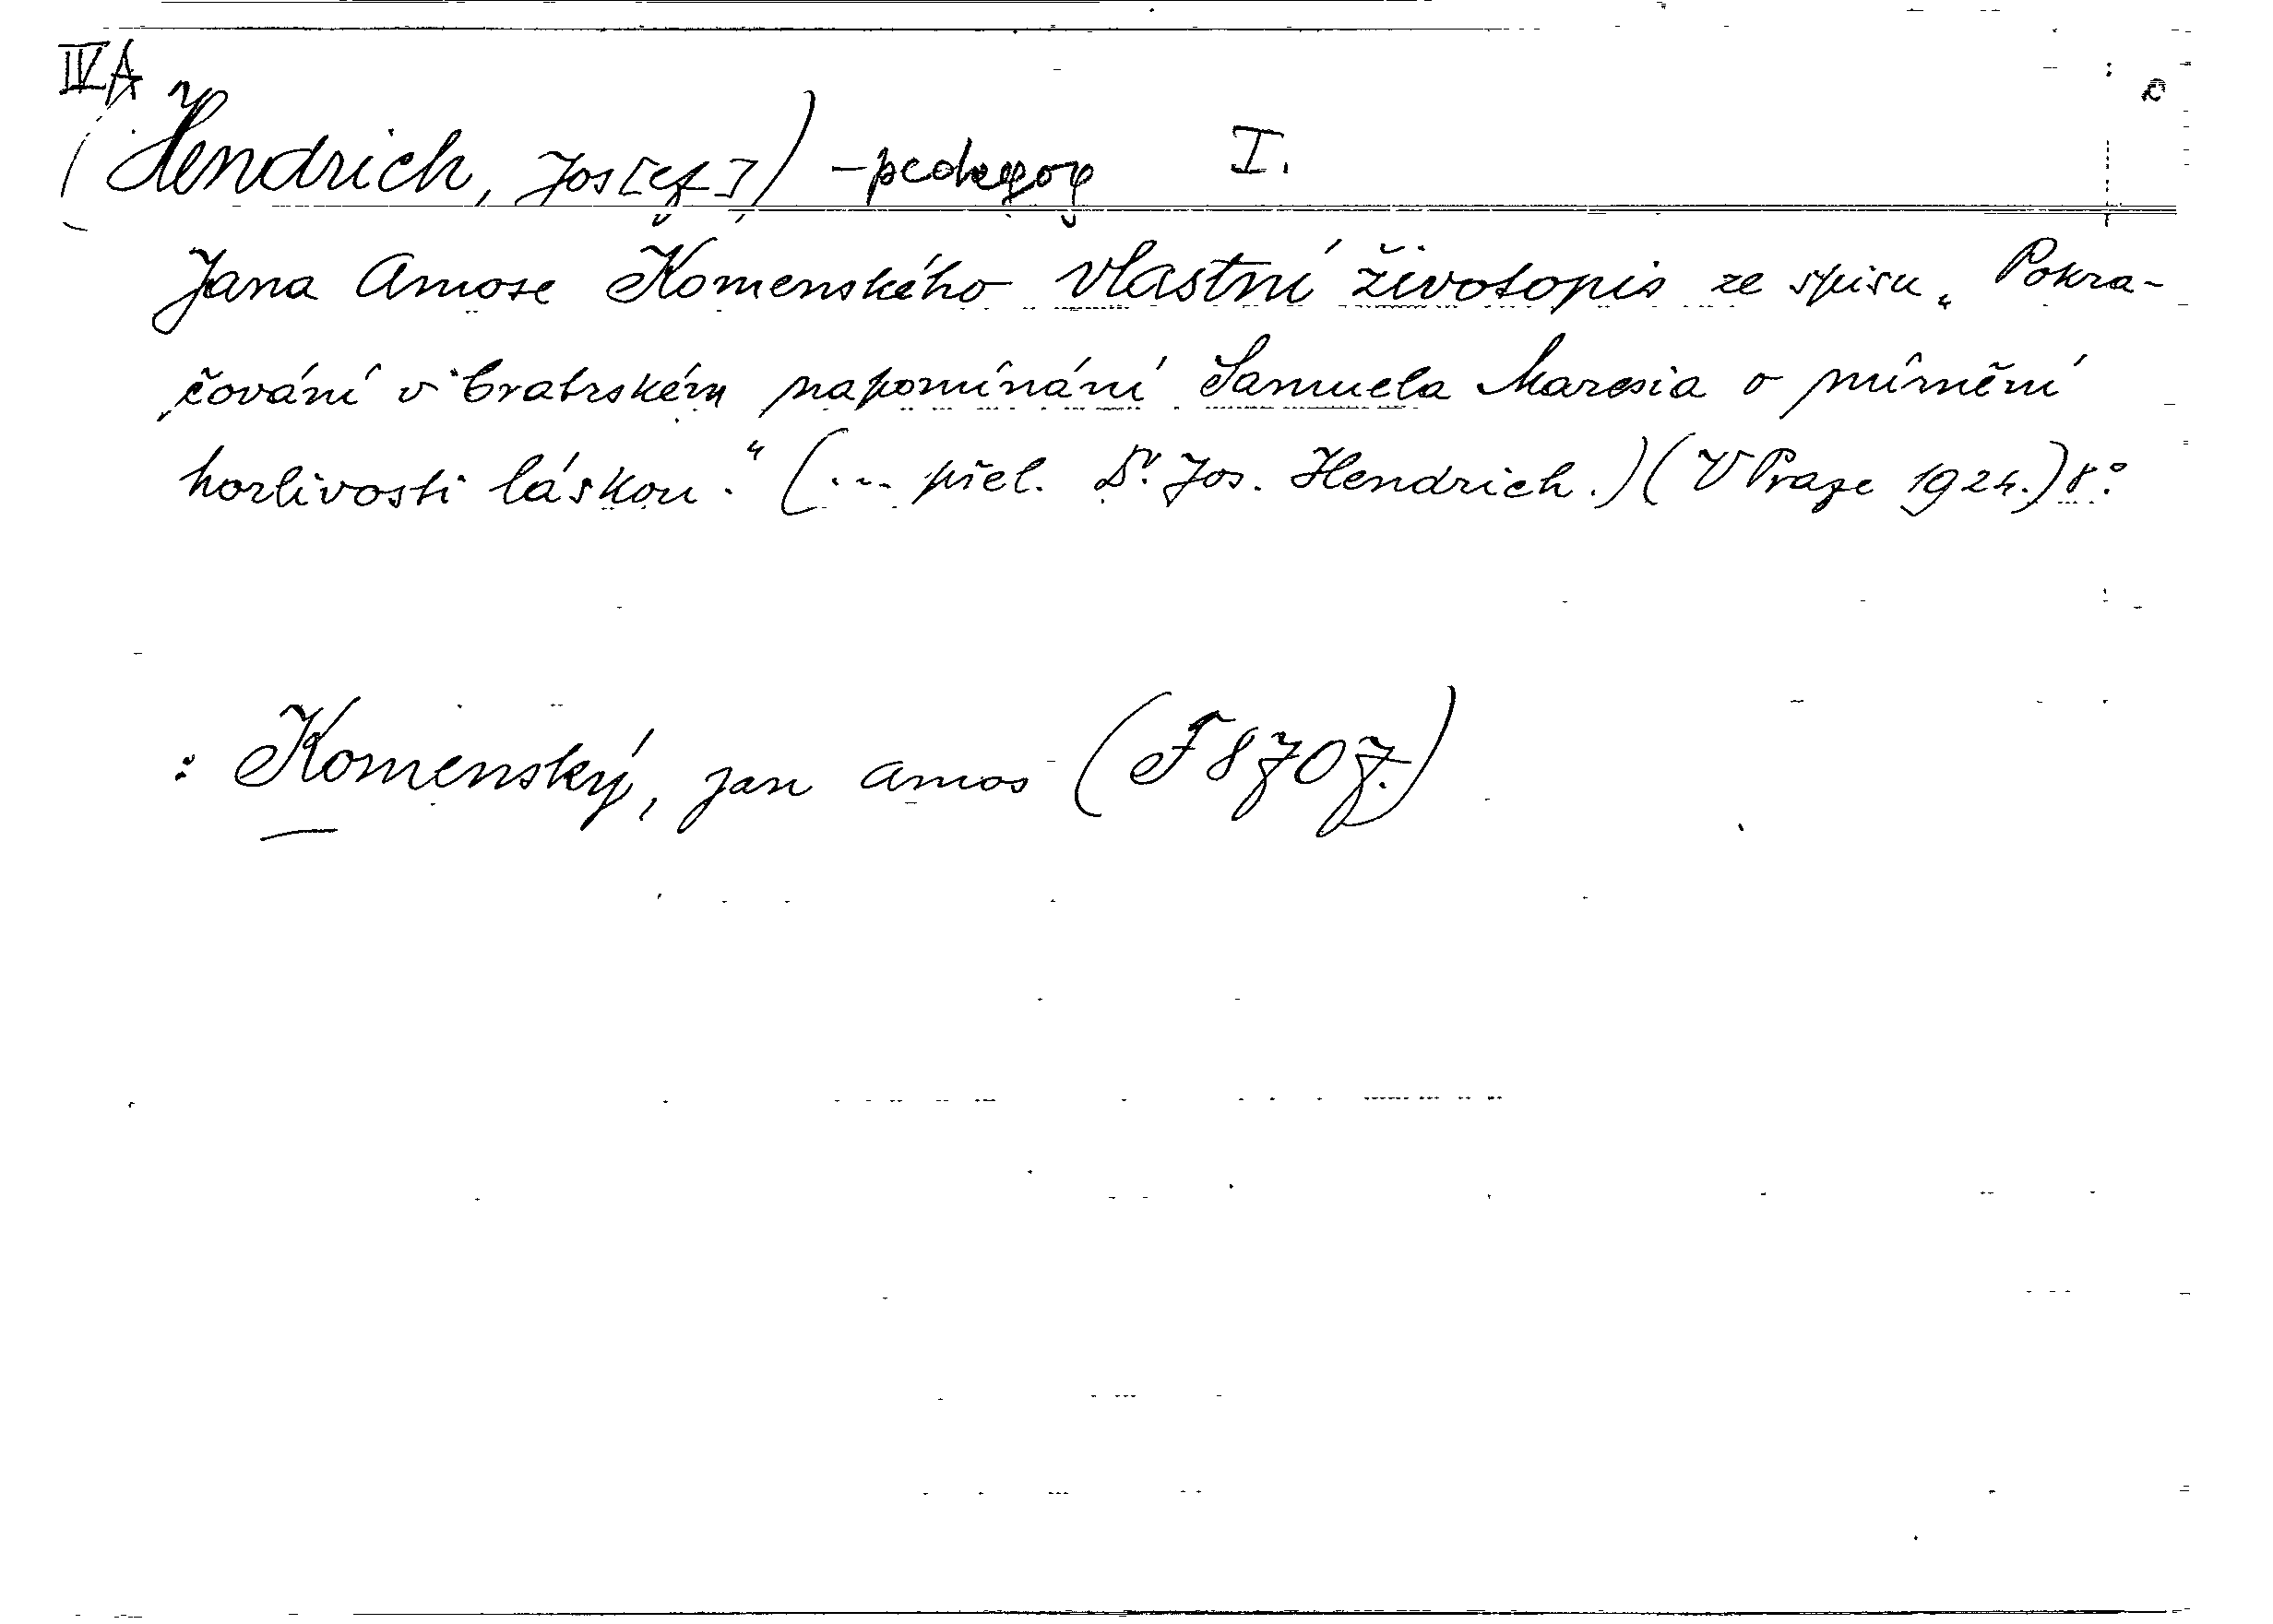 IVA
(Hendrich, Jos[ef]) - pedagog I.
Jana Amose Komenského vlastní životopis ze spisu „Pokra-
čování v bratrském napomínání Samuela Maresia o mírnění
horlivosti láskou." (... přel. Dr. Jos. Hendrich.) (V Praze 1924.) 8°.
: Komenský, Jan Amos (F 8707.)